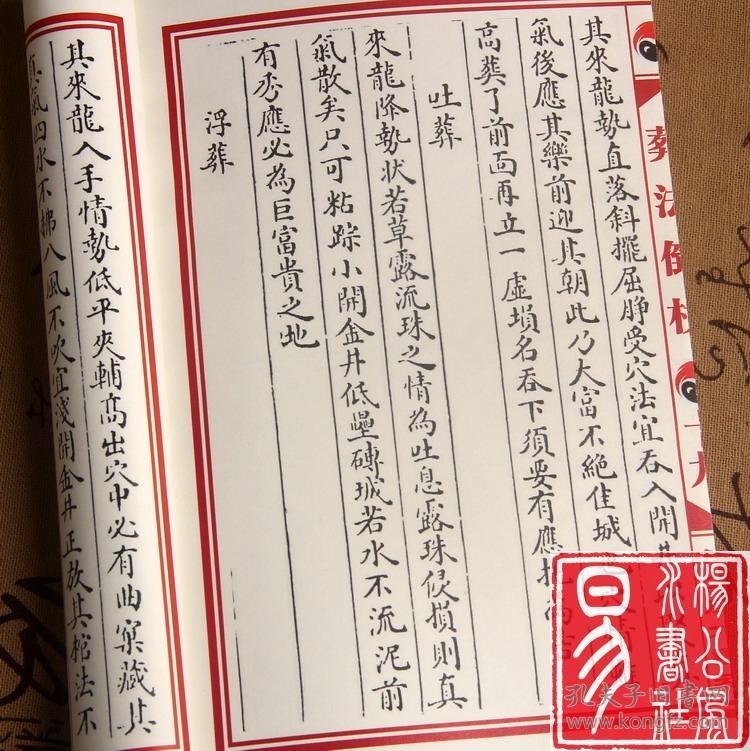 葬法倒杖
十九
其來龍勢直落斜擺屈脖受穴法宜吞入開井
氣後應其樂前迎其朝此乃大富不絕佳城
高葬了前面再立一虛塤名吞下須要有應
吐葬
來龍降勢狀若草露流珠之情為吐息露珠候損則真
氣散矣只可粘踪小開金井低壘磚城若水不流泥前
有秀應必為巨富貴之地
浮葬
其來龍入手情勢低平夾輔高出穴中必有曲窠藏其
真氣四水不拂八風不吹宜淺開金井正放其棺法不
易
楊公
書社
孔夫子旧書网
www.kongfz.com